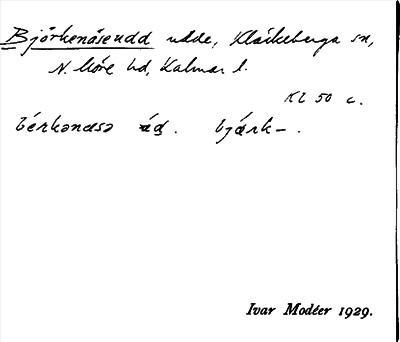 Björkenäseudd udde, Kläckeberga sn,
N. Möre hd, Kalmar l.
Kl 50 c.
bérkənɑsə ɑ́ḍ. bjǽrk–.
Ivar Modéer 1929.